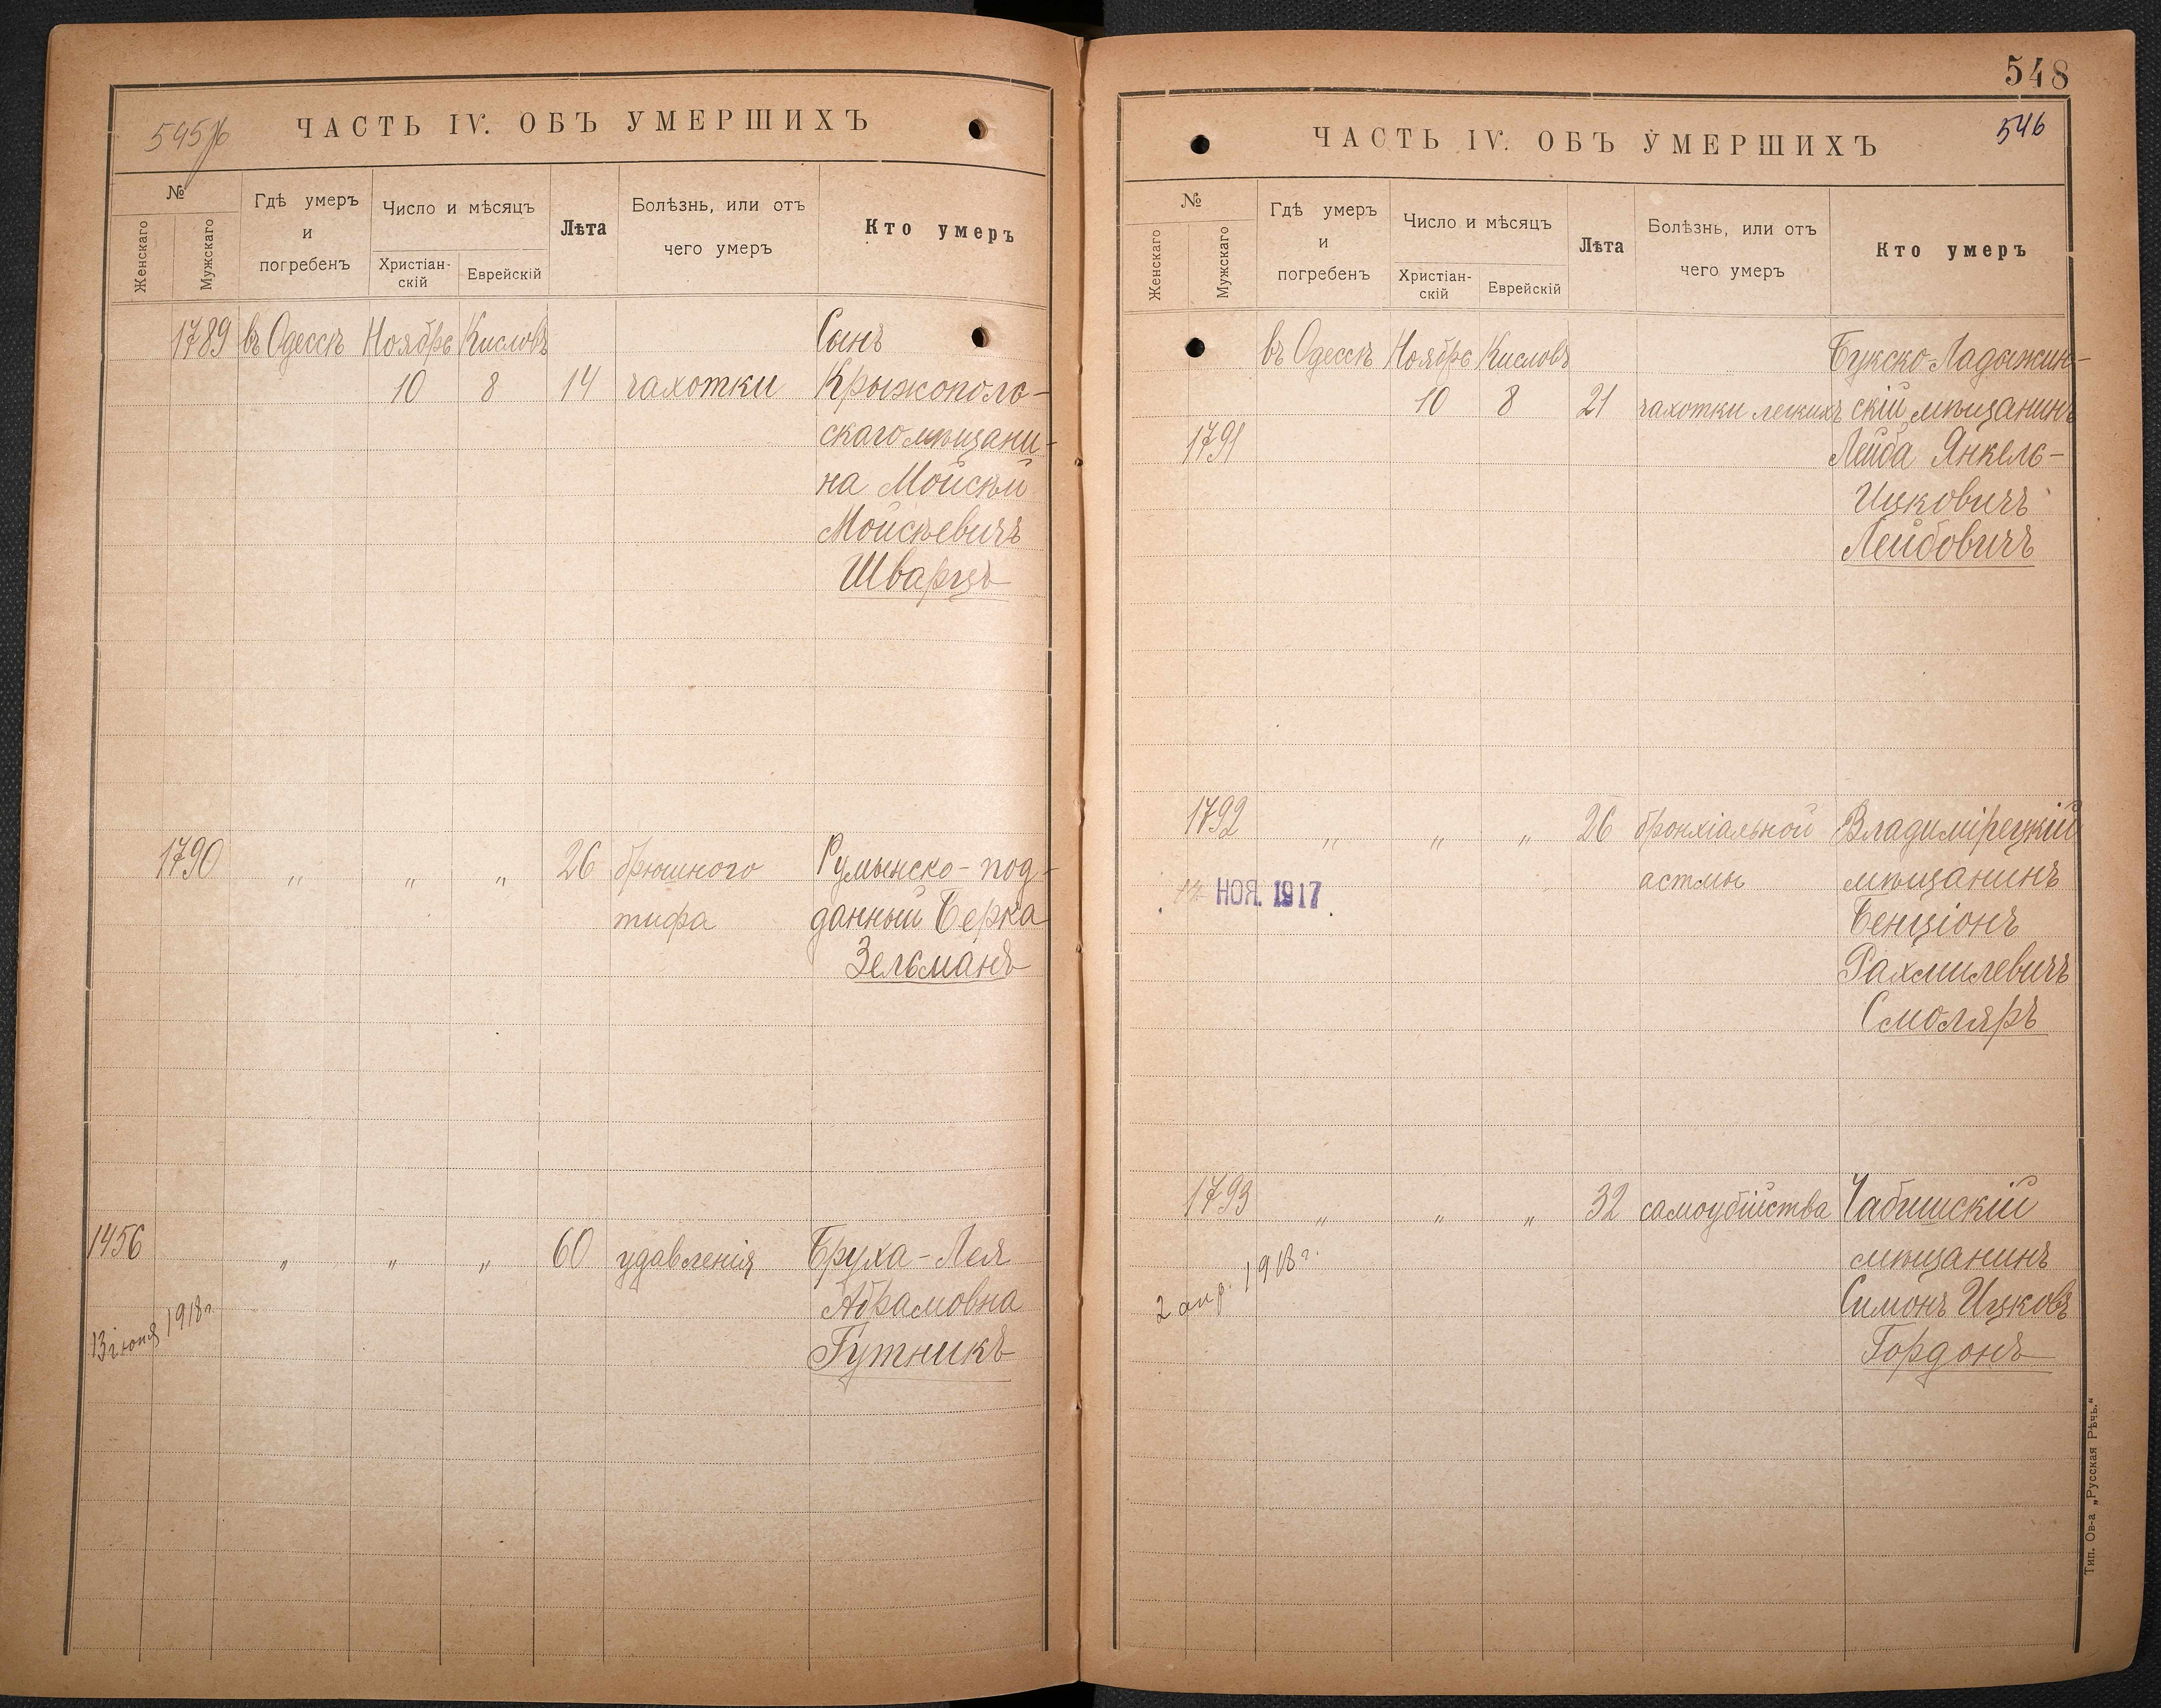 ЧАСТЬ IV. ОБЪ УМЕРШИХЪ
№
Женскаго
Мужскаго
Гдѣ умеръ
и
погребенъ
Число и мѣсяцъ
Христіан-
скій
Еврейскій
Лѣта
Болѣзнь, или отъ
чего умеръ
Кто умеръ
1789 въ Одессѣ Ноябрь Кисловъ Сынъ
10 8 14 чахотки Крыжополь-
скаго мѣщани-
на Мойсѣй
Мойсѣевичъ
Шварцъ
1790 " " " 26 брюшного Румынско-под-
тифа данный Берка
Зельманъ
1456 " " " 60 удавленія Бруха-Лея
Абрамовна
13 іюня 1918 г.
Гутникъ
548
546
ЧАСТЬ IV. ОБЪ УМЕРШИХЪ
№
Женскаго
Мужскаго
Гдѣ умеръ
и
погребенъ
Число и мѣсяцъ
Христіан-
скій
Еврейскій
Лѣта
Болѣзнь, или отъ
чего умеръ
Кто умеръ
въ Одессѣ Ноябрь Кисловъ Букско-Ладыжин-
10 8 21 чахотки легкихъ скій мѣщанинъ
1791 Лейба Янкель-
Ицковичъ
Лейбовичъ
1792 " " " 26 бронхіальной Владимірецкій
НОЯ. 1917 астмы мѣщанинъ
Бенціонъ
Рахмилевичъ
Смоляръ
1793 " " " 32 самоубійства
мѣщанинъ
2 апр. 1918 г.
Симонъ Ицковъ
Гордонъ
Тип. Ов-а „Русская Рѣчь."